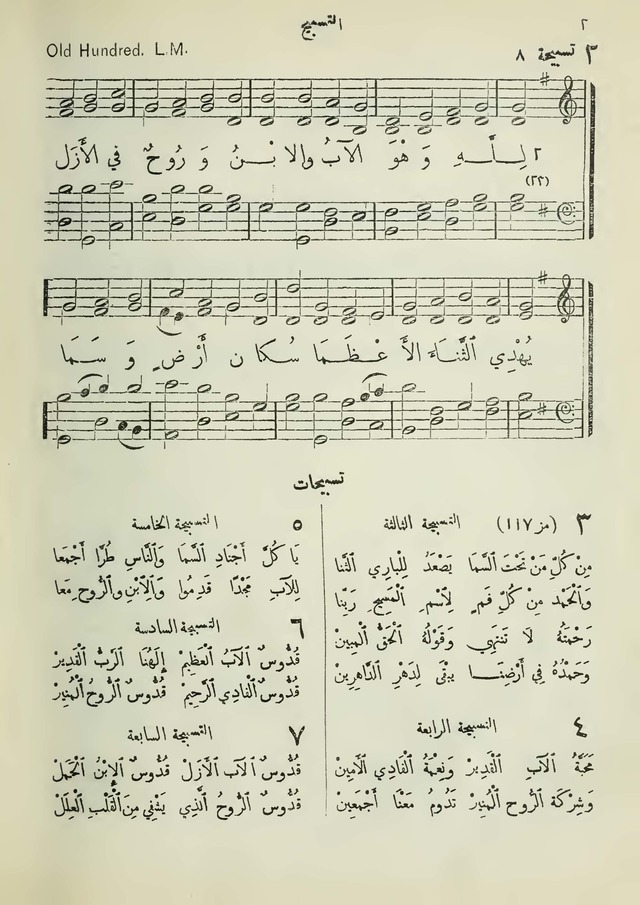 ٢
التسبيح
٣ تسبيحة ٨
Old Hundred. L.M.
٢ لِلّٰـهِ وَ هْوَ الآبُ والابْـنُ وَ رُوحٌ في الأَزَل
(٢٢)
يُهْدِي اَلثَّنَاءَ الأَعْـظَـمَا سُكـان أَرْضٍ وَ سَـمَا
تسبيحات
٣ (مز ١١٧) التسبيحة الثالثة
مِنْ كُلِّ مَنْ تَحْتَ السَّمَا يَصْعَدُ لِلْبَارِي الثَّنَا
وَاَلْحَمْد مِنْ كُلِّ فَمٍ لِاَسْمِ اَلْمَسِيحِ رَبِّنَا
رَحْمَتُهُ لَا تَنتَهِي وَقَوْلُهُ اَلْحَقُّ اَلْمُبِينْ
وَحَمْدُهُ فِي أَرْضِنَـا يبْقَى لِدَهْرِ الدَّاهِرِينْ
٤ التسبيحة الرابعة
مَحَبَّةُ اَلآبِ اَلْقَدِيرْ وَنِعْمَةُ اَلْفَادِي اَلأَمِينْ
وَشِرْكَةُ اَلرُّوحِ اَلْمُنِيرْ تَدُومُ مَعْنَا أَجْمَعِينْ
٥ التسبيحة الخامسة
يَا كُلَّ أَجْنَادِ السَّمَا وَاَلنَّاسِ طُرًّا أَجْمَعَا
لِلآبِ مَجْدًا قَدِمُوا وَاَلاِبْنِ واَلرُّوحِ مَعَا
٦ التسبيحة السادسة
قُدُّوسٌ اَلآبُ اَلْعَظِيمْ إِلٰهُنَا اَلرَّبُّ اَلْقَدِيرْ
قُدُّوسٌ اَلْفَادِي اَلرَّحِيمْ قُدُّوسٌ اَلرُّوحُ اَلْمُنِيرْ
٧ التسبيحة السابعة
قُدُّوسٌ اَلآبِ اَلأَزَلْ قُدُّوسٌ اَلاِبْنُ اَلْحَمَلْ
قُدُّوسٌ اَلرُّوحُ اَلَّذِي يَشْفِي مِنَ اَلْقَلْبِ اَلْعِلَلْ